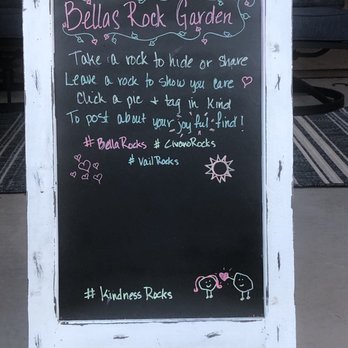 Bellas Rock Garden
Take a rock to hide or share
Leave a rock to show you care
Click a pic + tag in kind
To post about your joyful find!
#BellaRocks #CivanoRocks
#VailRocks
#KindnessRocks